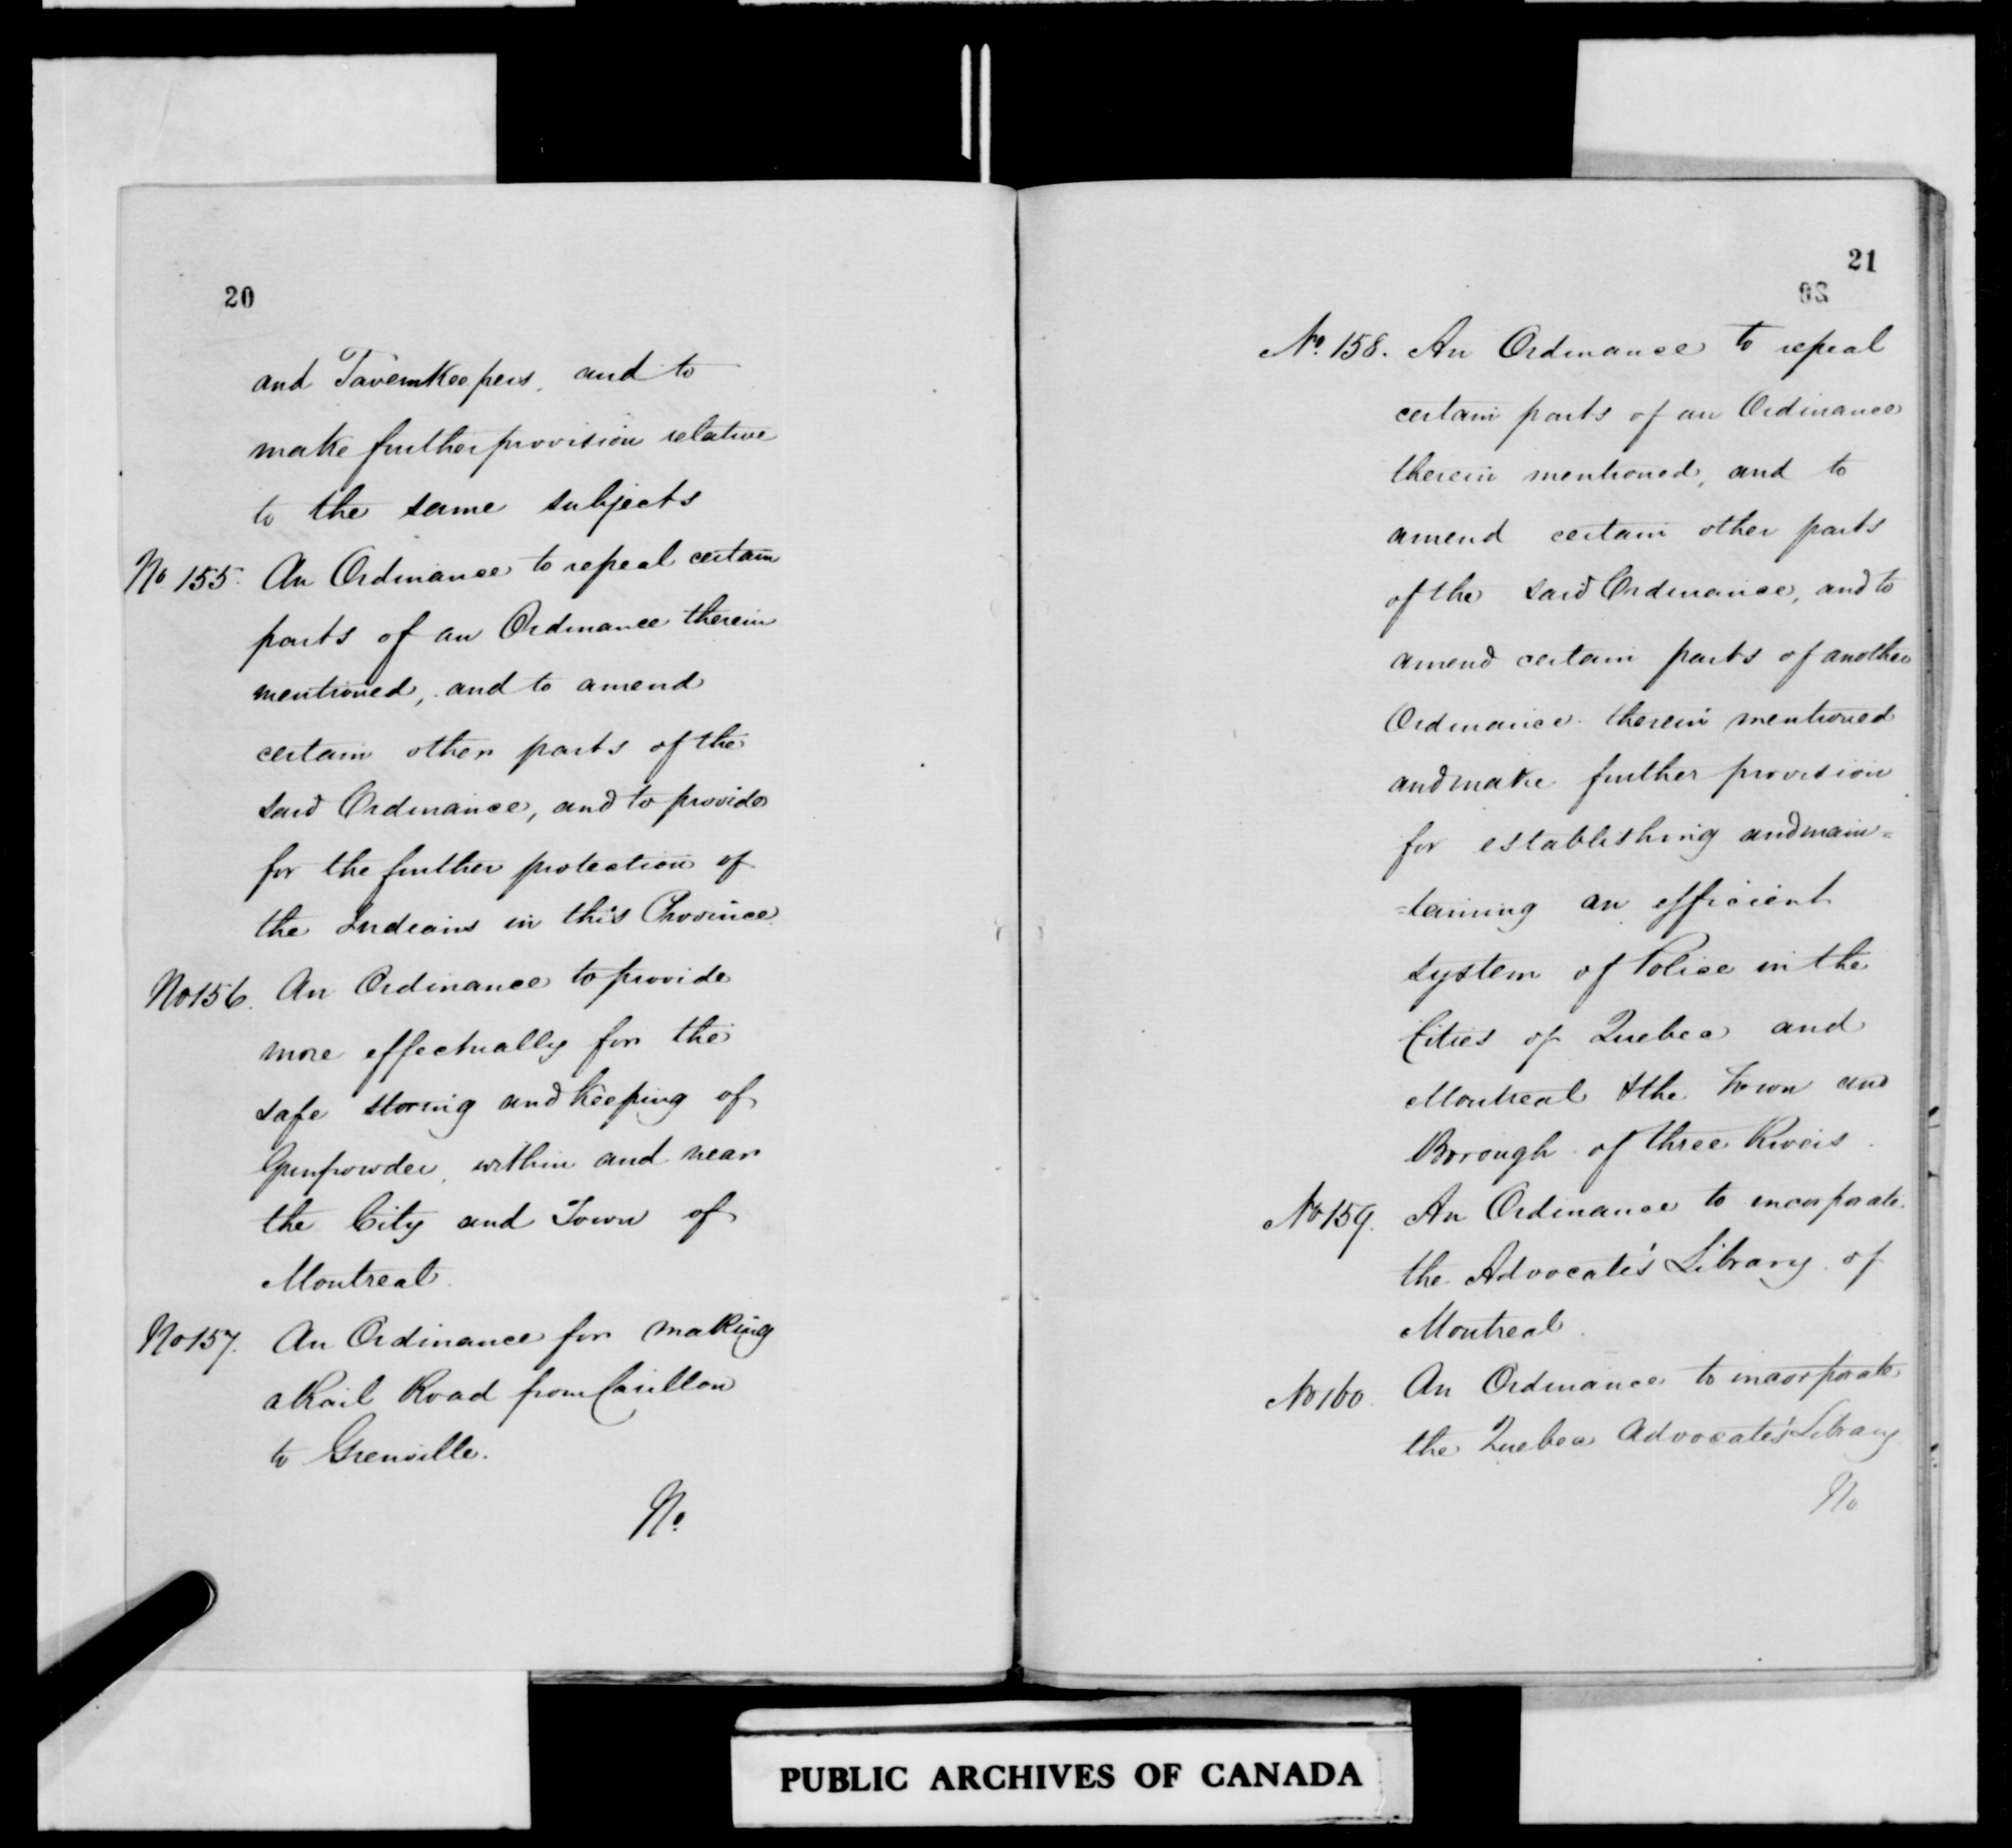 20
and Tavernkeepers, and to
make further provision relative
to the same subjects
No 155. An Ordinance to repeal certain
parts of an Ordinance therein
mentioned, and to amend
certain other parts of the
said Ordinance, and to provide
for the further protection of
the Indians in this Province
No 156. An Ordinance to provide
more effectually for the
safe storing and Keeping of
Gunpowder, within and near
the City and Town of
Montreal.
No 157. An Ordinance for making
a Rail Road from Carillon
to Grenville.
No.
21
20
No. 158. An Ordinance to repeal
certain parts of an Ordinance
therein mentioned, and to
amend certain other parts
of the said Ordinance, and to
amend certain parts of another
Ordinance therein mentioned
and make further provision
for establishing and main=
=taining an efficient
system of Police in the
Cities of Quebec and
Montreal & the Town and
Borough of three Rivers.
No 159. An Ordinance to incorporate
the Advocate's Library of
Montreal.
No 160. An Ordinance to incorporate
the Quebec Advocates' Library
No
PUBLIC ARCHIVES OF CANADA